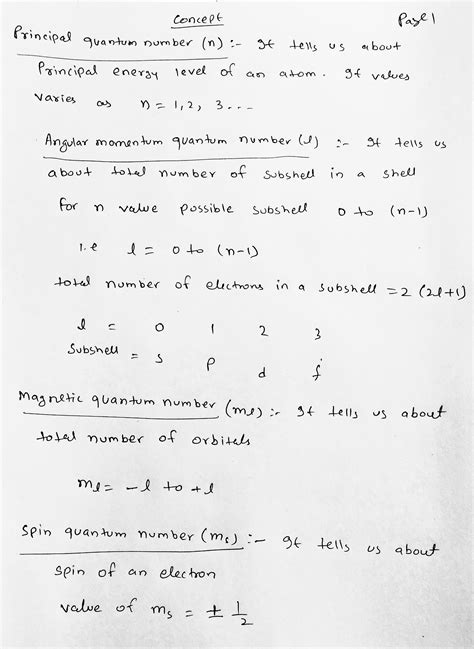 Concept Page 1
Principal quantum number (n) :- It tells us about
Principal energy level of an atom. It values
varies as n = 1, 2, 3 ...
Angular momentum quantum number (l) :- It tells us
about total number of subshell in a shell
for n value possible subshell 0 to (n-1)
i.e l = 0 to (n-1)
total number of electrons in a subshell = 2 (2l+1)
l = 0 1 2 3
Subshell = s p d f
Magnetic quantum number (ml) :- It tells us about
total number of orbitals
ml = -l to +l
Spin quantum number (ms) :- It tells us about
spin of an electron
value of ms = ± 1/2